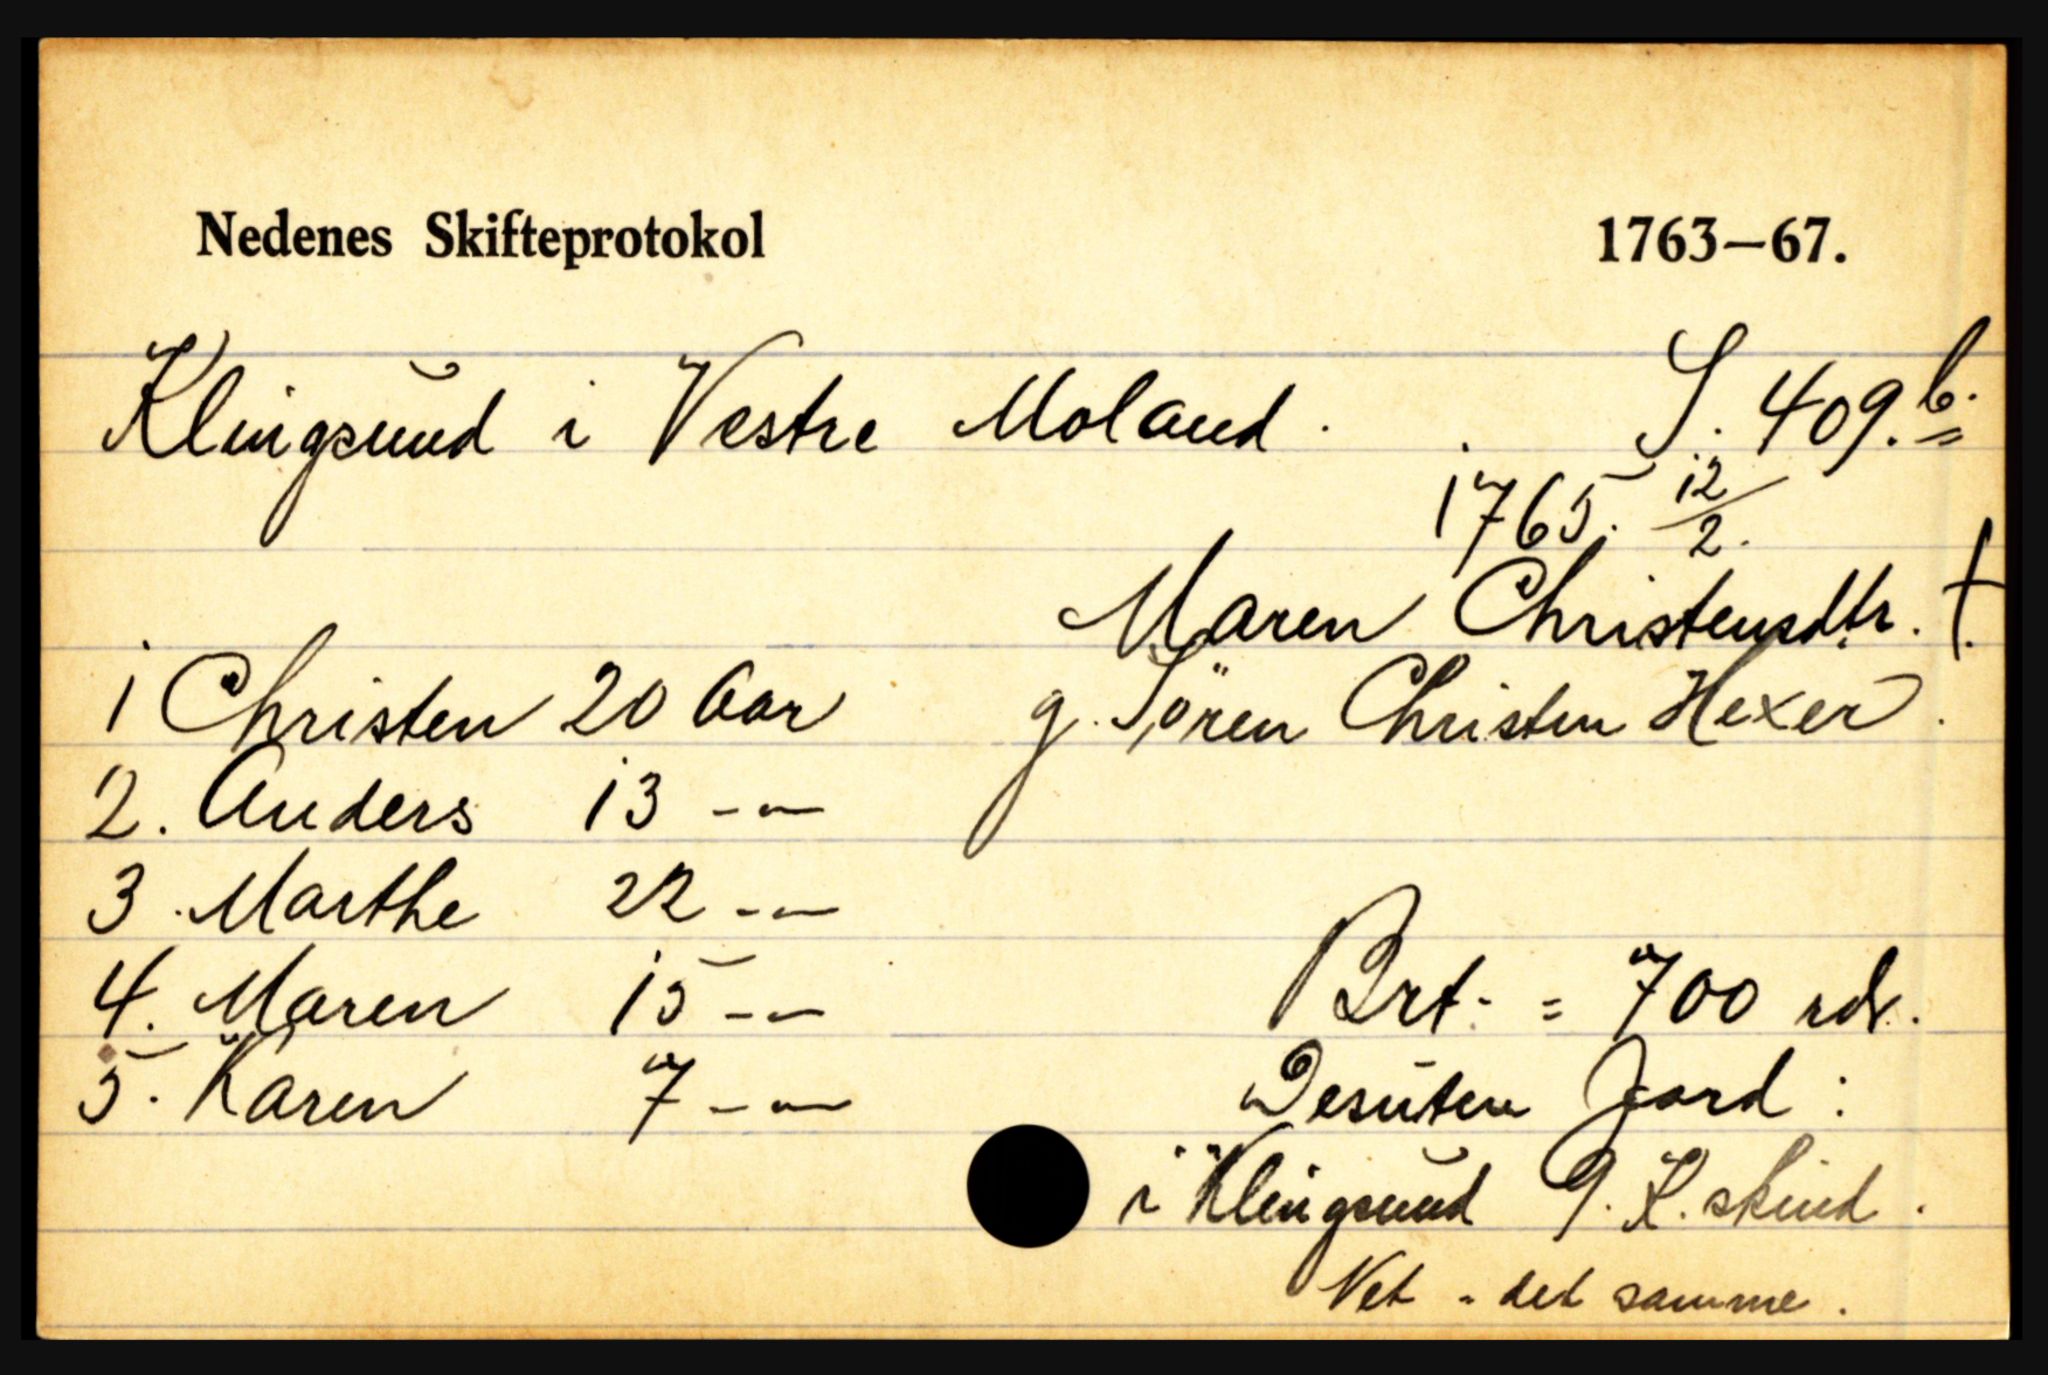 Nedenes Skifteprotokol 1763—67.
Klingsund i Vestre Moland. S. 409.b.
1765. 12/2.
Maren Christensdtr. †.
1 Christen 20 Aar g. Sören Christen Hexer.
2. Anders 13 -"-
3. Marthe 22 -"-
4. Maren 15 -"- Brt. = 700 rdr.
5. Karen 7 -"- Desuten Jord:
i Klingsund 9. K. skind.
Net - det samme.